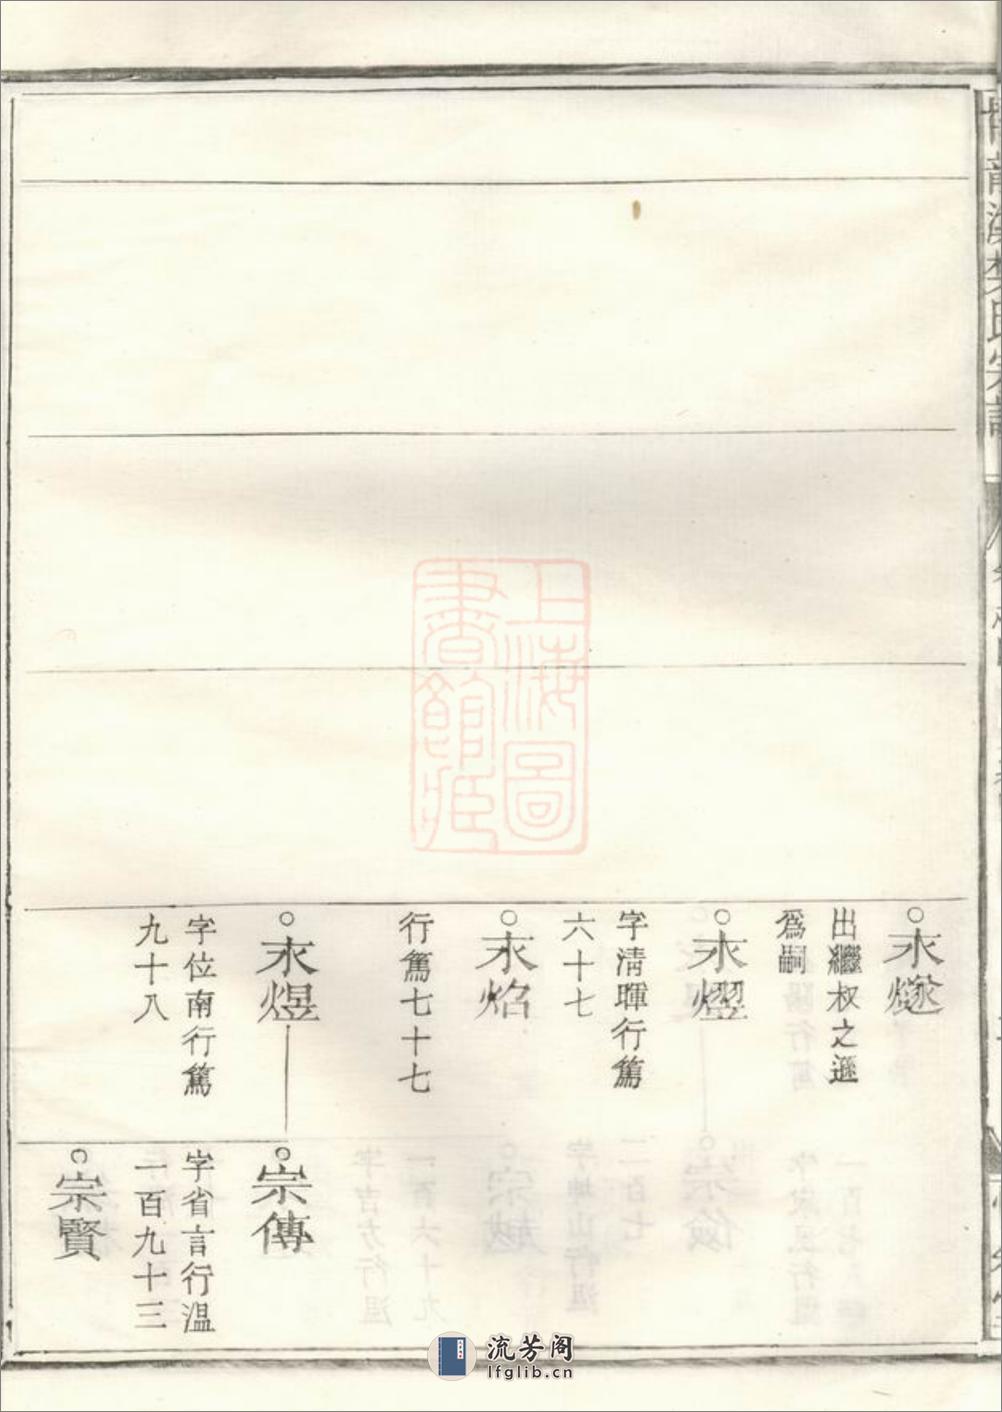 永燧
出繼权之遜
爲嗣
永熠
字清暉行篤
六十七
永焰
行篤七十七
永煜
字位南行篤
九十八
宗傳
字省言行溫
一百九十三
宗賢
上海圖
書館藏
流芳阁
lfglib.cn